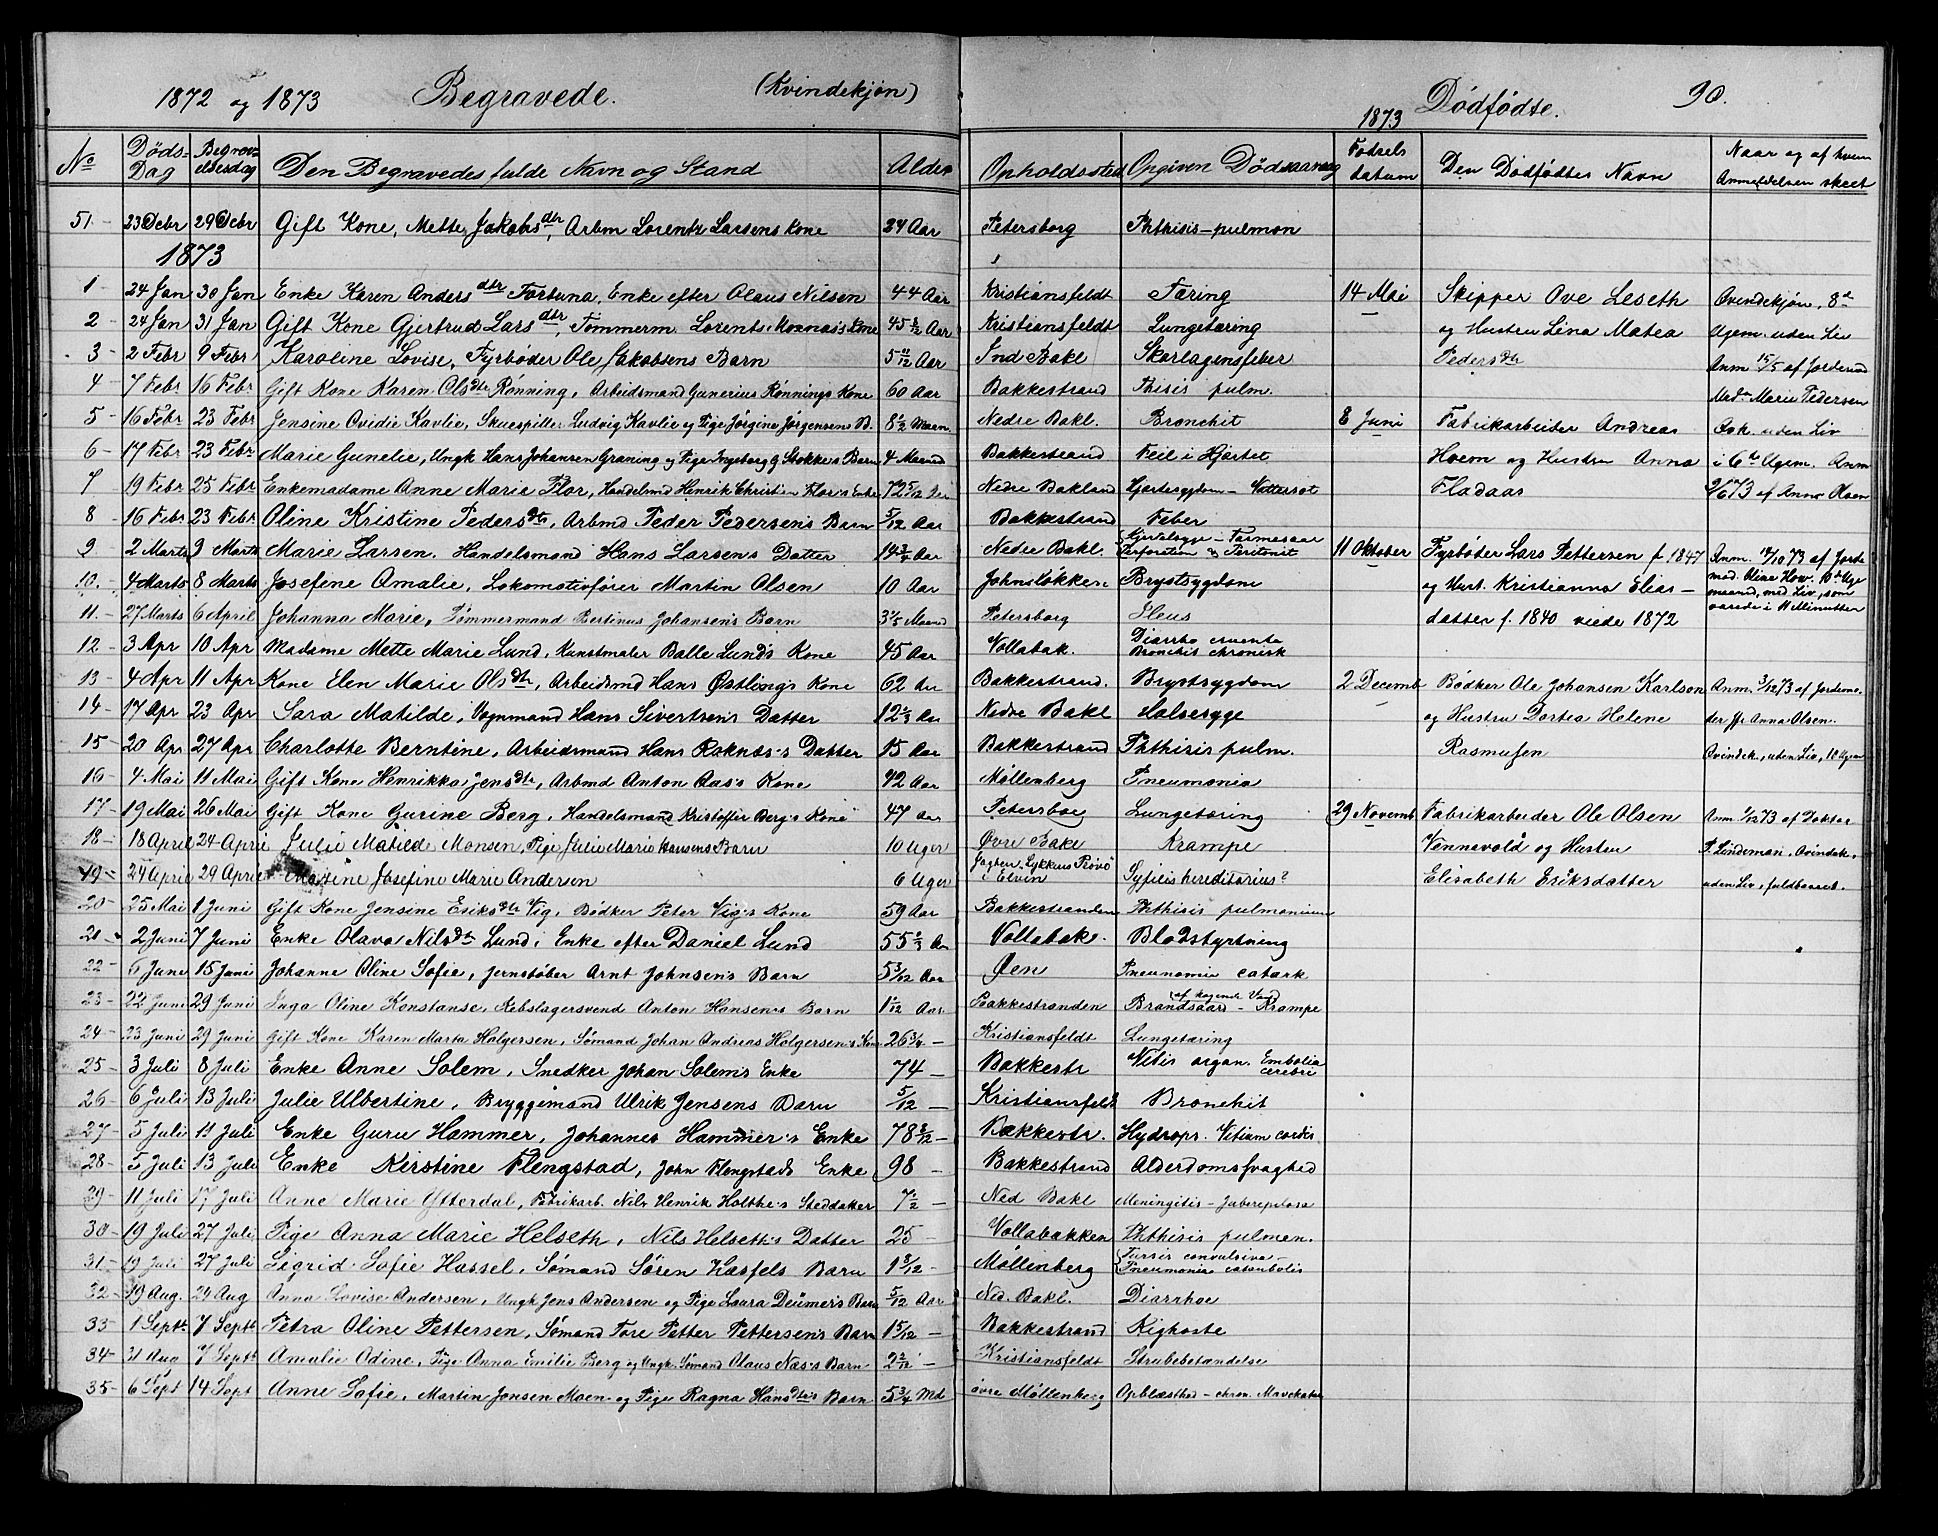 1872 og 1873 Begravede. (Kvindekjøn) 1873 Dødfødte. 90.
No Døds-Dag Begravelsesdag Den Begravedes fulde Navn og Stand Alder Opholdssted Opgiven Dødsaarsag Fødselsdatum Den Dødfødtes Navn Naar og af hvem Anmeldelsen skeet
51 23 Debr 29 Debr Gift Kone, Mette Jakobsdtr, Arbm Lorentz Larsens Kone 24 Aar Petersborg Phthisis-pulmon
1873
1 24 Jan 30 Jan Enke Karen Andersdtr Fortuna, Enke efter Olaus Nilsen 44 Aar Kristiansfeldt Tæring 14 Mai Skipper Ove Leseth Qvindekjøn, 8de
2 24 Jan 31 Jan Gift Kone Gjertrud Larsdtr, Tømmerm. Lorents Kone 45 8/12 Aar Kristiansfeldt Lungetæring og Hustru Lina Matea Ugem. uden Liv
3 2 Febr 9 Febr Karoline Lovise, Fyrbøder Ole Jakobsens Barn 5 11/12 Aar Ind Bakl Skarlagensfeber Pedersdtr Anm 15/5 af Jordemd
4 7 Febr 16 Febr Gift Kone Karen Olsdtr Rønning, Arbeidsmand Gunerius Rønnings Kone 60 Aar Bakkestrand Phisis pulm. Mad. Marie Pedersen
5 16 Febr 23 Febr Jensine Ovidie Kavlie, Skuespiller Ludvig Kavlie og Pige Jørgine Jørgensens B. 8 1/2 Maan. Nedre Bakl. Bronchit 8 Juni Fabrikarbeider Andreas Qvk. uden Liv
6 17 Febr 23 Febr Marie Gunelie, Ungk Hans Johansen Graning og Pige Ingeborg G Stokkes Barn 4 Maaned Bakkestrand Feil i Hjertet Hoem og Hustru Anna i 6te Ugem. Anm
7 19 Febr 25 Febr Enkemadame Anne Marie Flor, Handelsmd Henrik Christian Flor's Enke 72 5/12 Aar Nedre Bakland Hjertesygdom - Vattersot Fladaas 9/6 73 af Anna Olsen
8 16 Febr 23 Febr Oline Kristine Pedersdtr, Arbmd Peder Pedersen's Barn 5/12 Aar Bakkestrand Feber
9 2 Marts 9 Marts Marie Larsen, Handelsmand Hans Larsen's Datter 14 3/4 Aar Nedre Bakl. Perforation & Peritonit 11 Oktober Fyrbøder Lars Pettersen f 1847 Anm. 13/10 73 af Jorde
10 4 Marts 8 Marts Josefine Amalie, Lokomotivfører Martin Olsen 10 Aar Johnsløkken Brystsygdom og Hust. Kristianna Elias-
11 27 Marts 6 April Johanna Marie, Tømmermand Bertinus Johansen's Barn 3 1/2 Maand Petersborg Ileus datter f. 1840 viede 1872
12 3 Apr 10 Apr Madame Mette Marie Lund, Kunstmaler Balle Lund's Kone 45 Aar Vollabak. Diarrho cruenta Bronchit chronisk
13 4 Apr 11 Apr Kone Elen Marie Olsdtr, Arbeidsmd Hans Østling's Kone 62 Aar Bakkestrand. Brystsygdom 2 Decemb Bødker Ole Johansen Karlson Anm. 3/12 73 af Jordemo
14 17 Apr 23 Apr Sara Matilde, Vognmand Hans Sivertsen's Datter 12 2/3 Aar Nedre Bakl Halsesyge og Hustru Dortea Helene der Anna Olsen.
15 20 Apr 27 Apr Charlotte Berntine, Arbeidsmand Hans Raknes's Datter 15 Aar Bakkestrand Phthisis pulm. Rasmusen Qvindek., uden Liv, 10 Ugem
16 4 Mai 11 Mai Gift Kone Henrikka Jensdtr, Arbmd Anton Aas's Kone 42 Aar Møllenberg Pneumonia
17 19 Mai 26 Mai Gift Kone Gurine Berg, Handelsmand Kristoffer Berg's Kone 47 Aar Petersbor Lungetæring 29 Novemb Fabrikarbeider Ole Olsen Anm. 1/12 73 af Doktor
18 18 April 24 April Julie Matilde Monsen, Pige Julie Marie Hansens Barn 10 Uger Øvre Bakl Krampe Vennavold og Hustru P. Lindeman, Qvindek.
19 24 April 29 April Martine Josefine Marie Andersen 6 Uger i Elven Syfilis hereditarius? Elisabeth Eriksdatter uden Liv, fuldbaaret.
20 25 Mai 1 Juni Gift Kone Jensine Eriksdtr Vig, Bødker Peter Vig's Kone 59 Aar Bakkestranden Phthisis pulmonium
21 2 Juni 7 Juni Enke Olava Nilsdtr Lund, Enke efter Daniel Lund 55 2/3 Aar Vollabak. Blodstyrtning
22 6 Juni 15 Juni Johanne Oline Sofie, Jernstøber Arnt Johnsen's Barn 5 3/12 Aar Øen Pneunomia catark
23 22 Juni 29 Juni Inga Oline Konstanse, Rebslagersvend Anton Hansen's Barn 1 1/12 Aar Bakkestranden Brandsaar af kogende Vand - Krampe
24 23 Juni 29 Juni Gift Kone Karen Marta Holgersen, Sømand Johan Andreas Holgersen's Kone 26 3/4 - Kristiansfeldt Lungetæring
25 3 Juli 8 Juli Enke Anne Solem, Snedker Johan Solem's Enke 74 - Bakkestr Vitis organ. Embolia cerebri
26 6 Juli 13 Juli Julie Albertine, Bryggemand Ulrik Jensens Barn 5/12 - Kristiansfeld Bronchit
27 5 Juli 11 Juli Enke Guru Hammer, Johannes Hammer's Enke 78 8/12 - Bakkestr. Hydrops. Vitium cordis
28 5 Juli 13 Juli Enke Kerstine Flengstad, John Flengstads Enke 98 - Bakkestrand Alderdomsfvaghed
29 11 Juli 17 Juli Anne Marie Ytterdal, Fabrikarb. Nils Henrik Holthe's Steddatter 7 1/2 - Ned Bakl Meningitis - Juberculosa
30 19 Juli 27 Juli Pige Anna Marie Helseth, Nils Helseth's Datter 25 - Vollabakken Phthisis pulmon.
31 19 Juli 27 Juli Sigrid Sofie Hassel, Sømand Søren Hasfels Barn 1 8/12 - Møllenberg Tussis convulsiva - Pneumonia
32 19 Aug. 24 Aug Anna Lovise Andersen, Ungk Jens Andersen og Pige Laura Deumer's Barn 5/12 Aar Ned. Bakl. Diarrhoe
33 1 Septr 7 Septr Petra Oline Pettersen, Sømand Tore Petter Pettersen's Barn 1 5/12 - Bakkestrand Kighoste
34 31 Aug 7 Septr Amalie Odine, Pige Anna Emilie Berg og Ungk. Sømand Olaus Næs's Barn 2 2/12 - Kristiansfeldt Strubebetændelse
35 6 Sept 14 Sept Anne Sofie, Martin Jensen Moen og Pige Ragna Hansdtr's Barn 5 3/4 Md øvre Møllenberg Opblæsthed - chron. Mavekatar